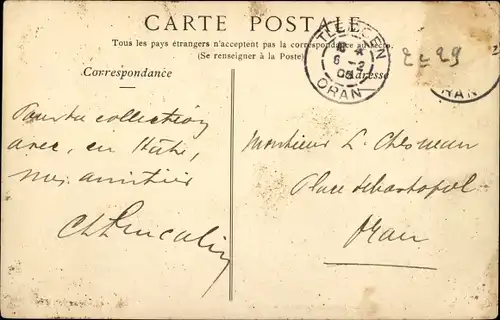 CARTE POSTALE
Tous les pays étrangers n'acceptent pas la correspondance au recto.
(Se renseigner à la Poste)
TLEMCEN
6 -2
08
ORAN
2=29
RAN
Correspondance
Adresse
Pour ta collection
avec, en Hâte,
mes amitiés
Monsieur L. Chesneau
Place Sébastopol
Oran